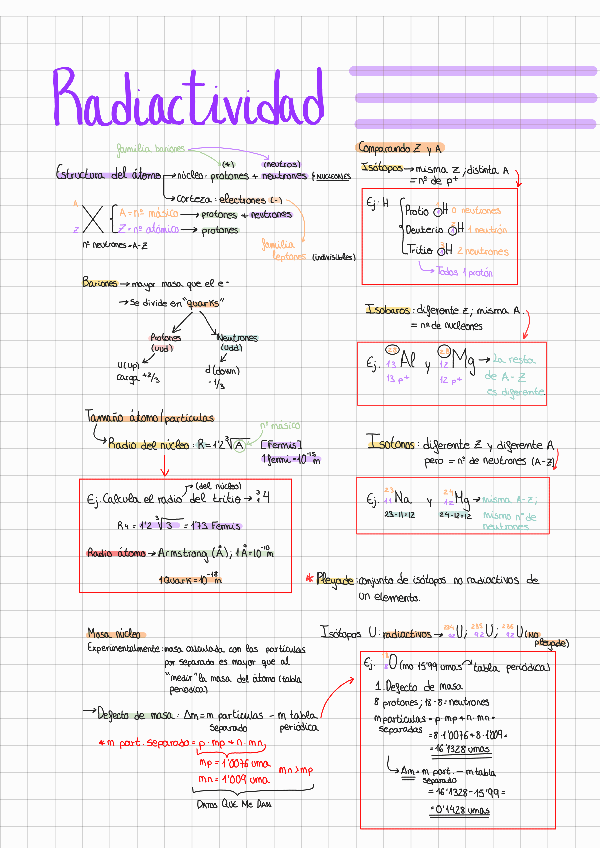 Radiactividad
familia bariones
(+) (neutros)
Estructura del átomo → núcleo: protones + neutrones {NUCLEONES
→ Corteza: electrones (-)
A
X
Z
A = nº másico → protones + neutrones
Z = nº atómico → protones
nº neutrones = A-Z
familia leptones (indivisibles)
Bariones → mayor masa que el e-
→ Se divide en "quarks"
Protones (uud)
Neutrones (udd)
u (up) carga +2/3
d (down) -1/3
Tamaño átomo/partículas
nº másico
Radio del núcleo: R = 1'2 ∛A [Fermis]
1 fermi = 10⁻¹⁵ m
(del núcleo)
Ej. Calcula el radio del tritio → ³₁H
R₄ = 1'2 ∛3 = 1'73 Fermis
Radio átomo → Armstrong (Å); 1Å = 10⁻¹⁰ m
1 Quark = 10⁻¹⁸ m
Masa núcleo
Experimentalmente: masa calculada con las partículas
por separado es mayor que al
"medir" la masa del átomo (tabla
periódica)
→ Defecto de masa: Δm = m partículas - m tabla
separado periódica
* m part. separado = p · mp + n · mn
mp = 1'0076 uma
mn = 1'009 uma
mn > mp
DATOS QUE ME DAN
Comparando Z y A
Isótopos → misma Z; distinta A
= nº de p⁺
Ej: H
Protio H 0 neutrones
Deuterio H 1 neutrón
Tritio H 2 neutrones
→ Todos 1 protón
Isobaros: diferente Z; misma A
= nº de nucleones
Ej. ₁₃Al y ₁₂Mg → La resta
13 p⁺ 12 p⁺ de A-Z
es diferente
Isotonos: diferente Z y diferente A
pero = nº de neutrones (A-Z)
Ej. ²³₁₁Na y ²⁴₁₂Mg → misma A-Z;
23-11=12 24-12=12 mismo nº de
neutrones
* Pleyade: conjunto de isótopos no radiactivos de
un elemento.
Isótopos U. radiactivos → ²³⁴₉₂U; ²³⁵₉₂U; ²³⁸₉₂U (no
pleyade)
Ej. O (mo 15'99 umas → tabla periódica)
1. Defecto de masa
8 protones; 18-8 = neutrones
m partículas = p · mp + n · mn =
separadas = 8·1'0076 + 8·1'009 =
= 16'1328 umas
→ Δm = m part. - m tabla
separado
= 16'1328 - 15'99 =
= 0'1428 umas